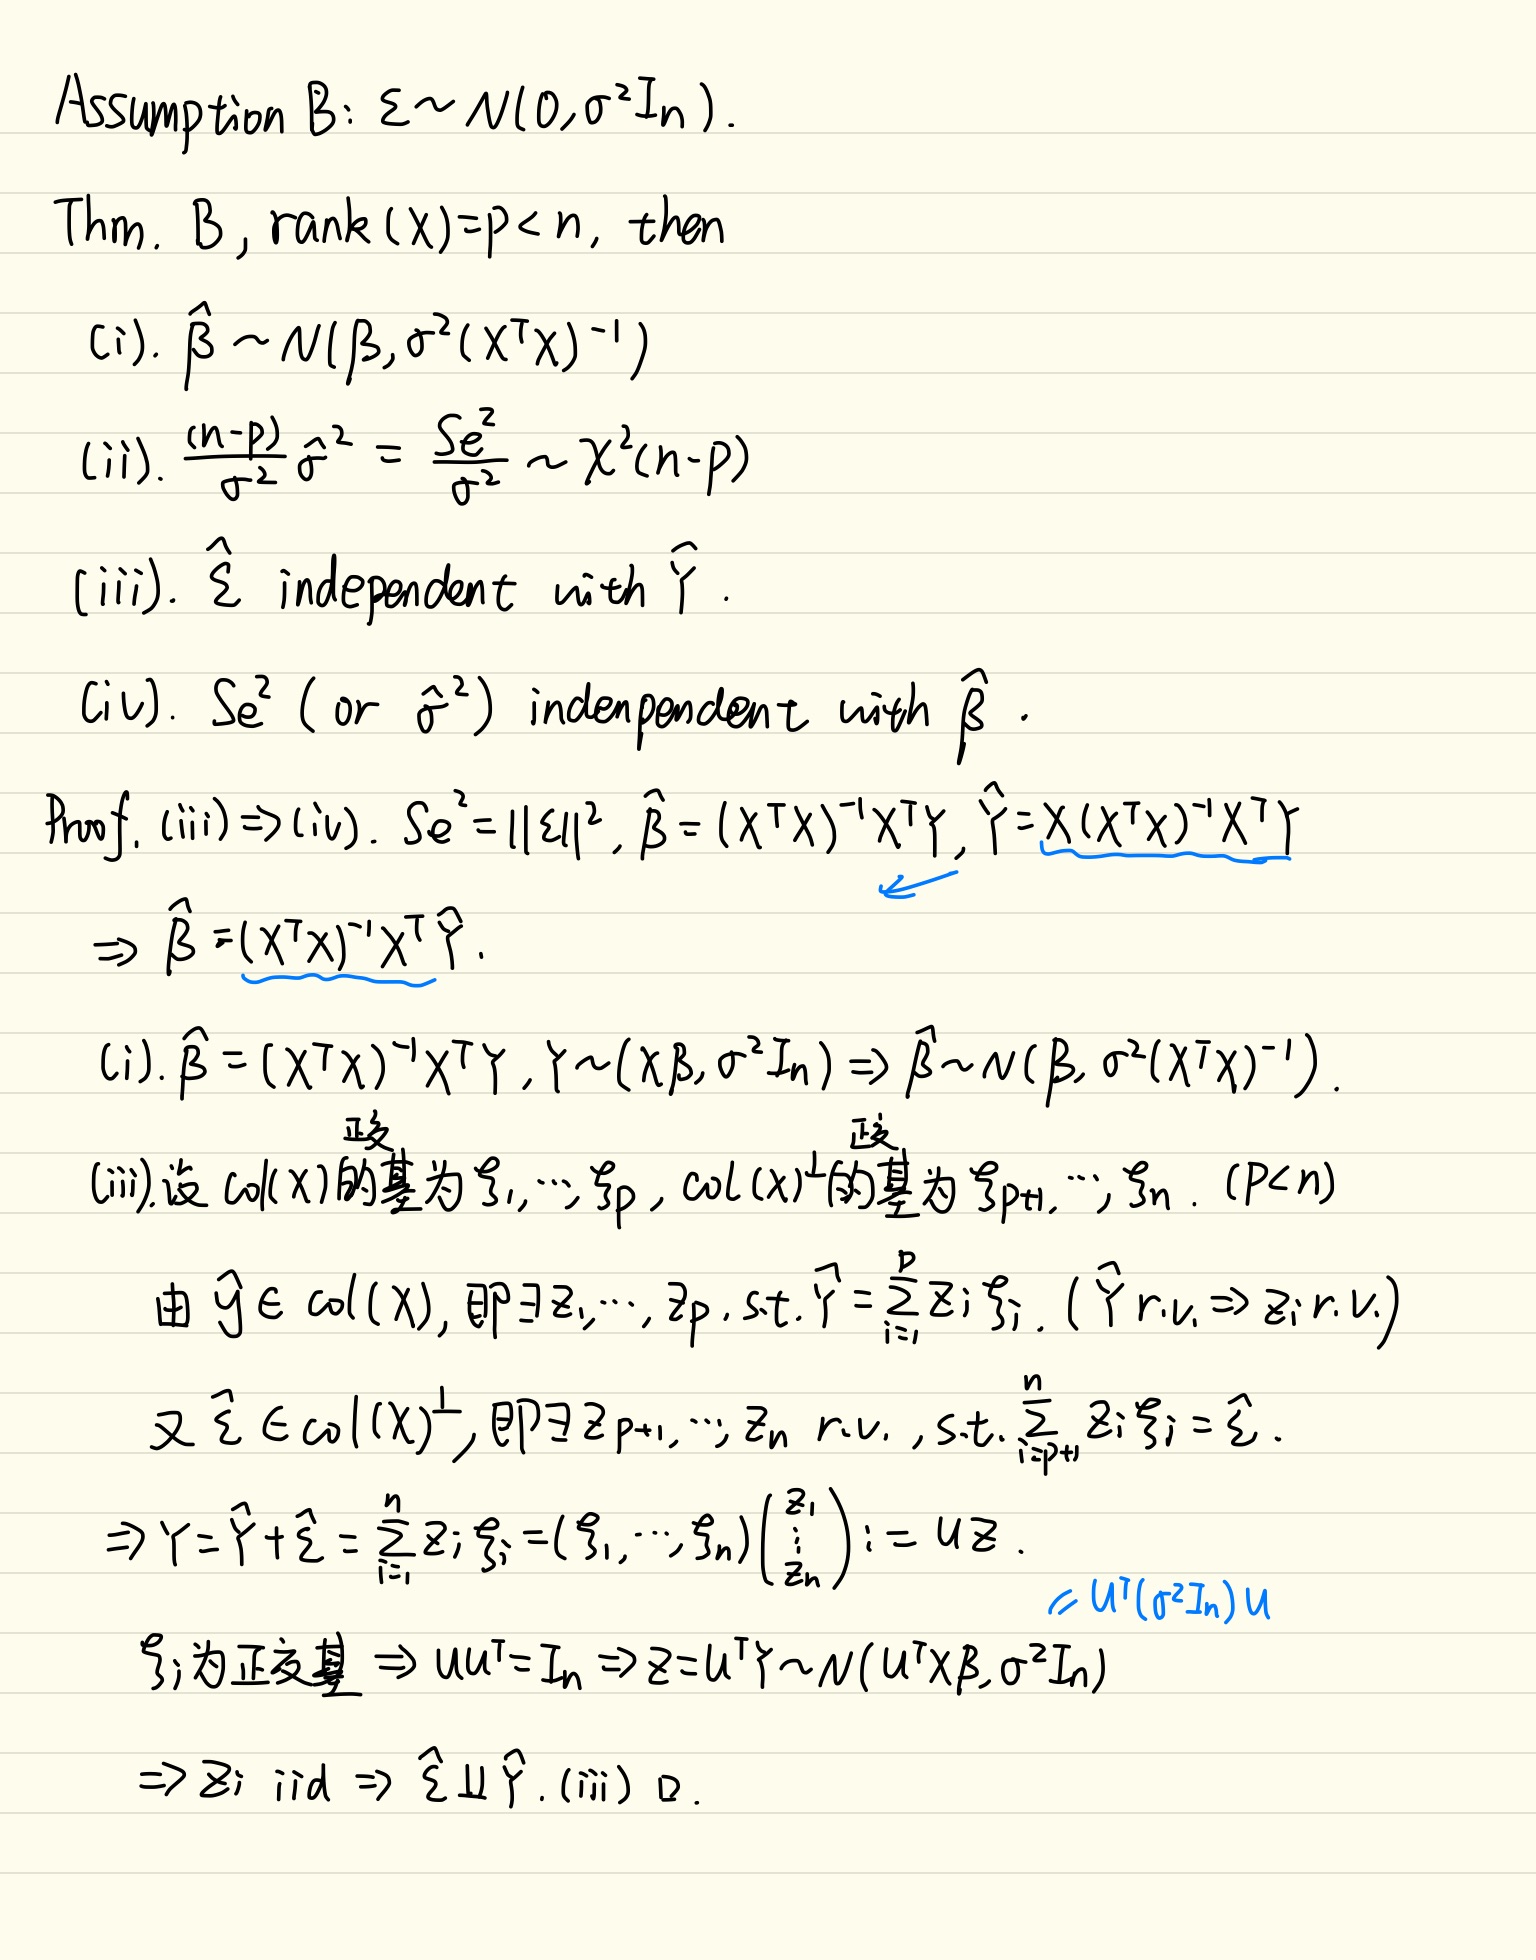 Assumption B: ε ~ N(0, σ²Iₙ).
Thm. B, rank(X)=p<n, then
(i). β̂ ~ N(β, σ²(XᵀX)⁻¹)
(ii). (n-p)/σ² σ̂² = Se²/σ² ~ χ²(n-p)
(iii). ε̂ independent with Ŷ.
(iv). Se² (or σ̂²) indenpendent with β̂.
Proof. (iii)⇒(iv). Se²=||ε||², β̂=(XᵀX)⁻¹XᵀY, Ŷ=X(XᵀX)⁻¹XᵀY
⇒ β̂=(XᵀX)⁻¹XᵀŶ.
(i). β̂=(XᵀX)⁻¹XᵀY, Y~(Xβ, σ²Iₙ) ⇒ β̂~N(β, σ²(XᵀX)⁻¹).
正交 正交
(iii).设 col(X)的基为ξ₁,…,ξp, col(X)^⊥的基为ξp+1,…,ξn. (p<n)
由 ŷ∈col(X), 即∃z₁,…,zp, s.t. Ŷ=∑_{i=1}^{p} zᵢξᵢ. (Ŷ r.v. ⇒ zᵢ r.v.)
又 ε̂∈col(X)^⊥, 即∃zp+1,…,zn r.v., s.t. ∑_{i=p+1}^{n} zᵢξᵢ=ε̂.
⇒ Y=Ŷ+ε̂=∑_{i=1}^{n} zᵢξᵢ=(ξ₁,…,ξn)(z₁ ⋮ zn) := UZ.
= Uᵀ(σ²Iₙ)U
ξᵢ为正交基 ⇒ UUᵀ=Iₙ ⇒ Z=UᵀY~N(UᵀXβ, σ²Iₙ)
⇒ zᵢ iid ⇒ ε̂ ⫫ Ŷ. (iii) □.